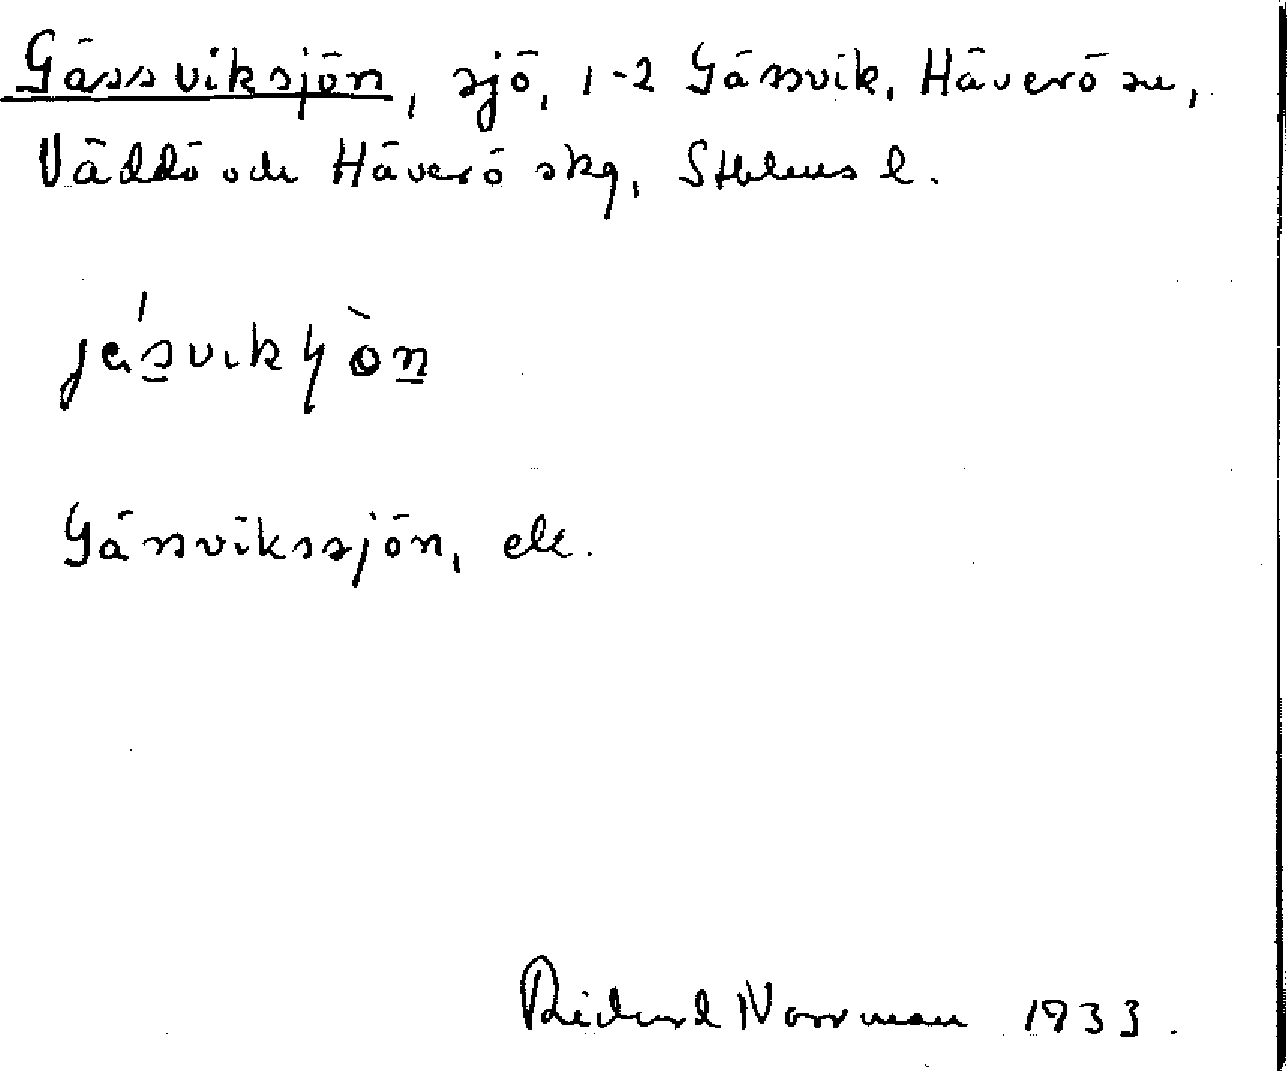 Gässviksjön, sjö, 1-2 Gässvik, Häverö sn,
Väddö och Häverö skg, Sthlms l.
jäsvikɧòn
Gässvikssjön, ek.
Richard Norrman 1933.